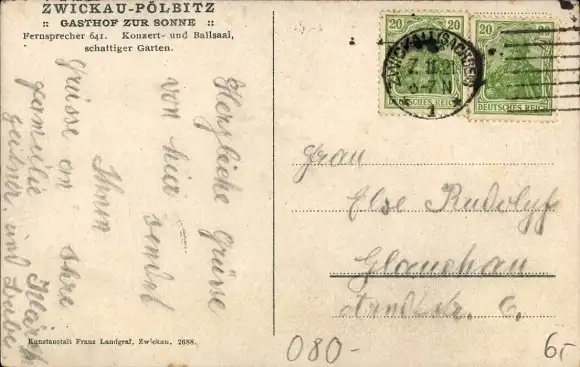 ZWICKAU-PÖLBITZ
:: GASTHOF ZUR SONNE ::
Fernsprecher 641. Konzert- und Ballsaal,
schattiger Garten.
Herzliche Grüsse
von hier sendet
Ihnen
Grüsse an Ihre
Familie
und
20 20
20 20
DEUTSCHES REICH
DEUTSCHES REICH
ZWICKAU (SACHSEN)
1
Frau
Else Rudolph
Glauchau
Kunstanstalt Franz Landgraf, Zwickau, 2688.
080-
6,-